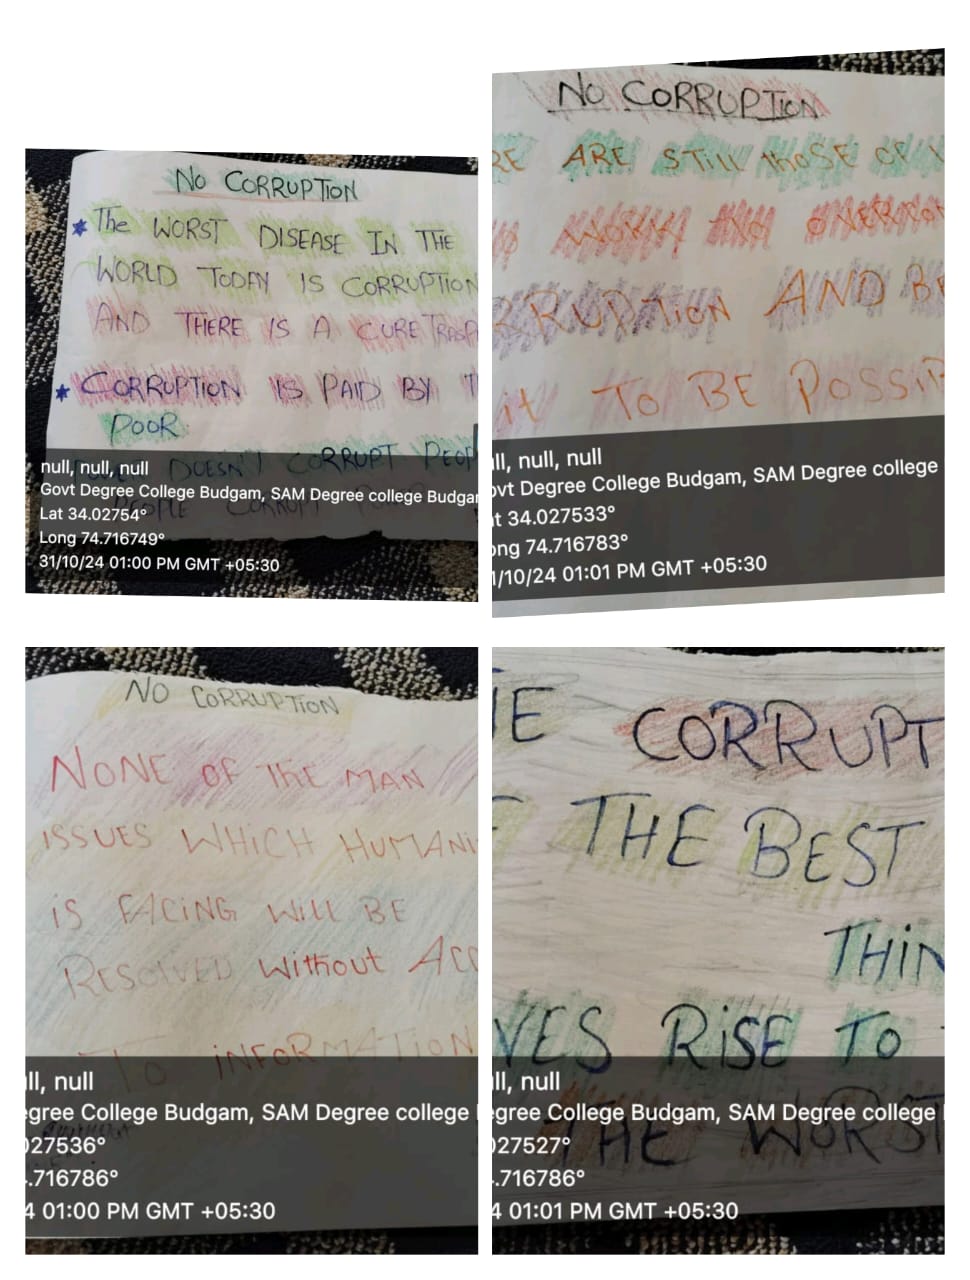 No CORRUPTION
The WORST DISEASE IN THE
WORLD TODAY IS CORRUPTION
AND THERE IS A CURE TRASP
CORRUPTION IS PAID BY T
POOR
DOESN'T CORRUPT PEOP
PEOPLE CORRUPT
null, null, null
Govt Degree College Budgam, SAM Degree college Budgar
Lat 34.02754°
Long 74.716749°
31/10/24 01:00 PM GMT +05:30
No CORRUPTION
RE ARE STill thoSE OF
WORK
RRUPTION AND BE
it TO BE POSSIB
ll, null, null
ovt Degree College Budgam, SAM Degree college
t 34.027533°
ong 74.716783°
1/10/24 01:01 PM GMT +05:30
NO CORRUPTION
NONE OF THE MAN
ISSUES WHICH HUMANI
iS FACING WILL BE
RESOLVED Without ACC
TO INFORMATION
ll, null
egree College Budgam, SAM Degree college
027536°
.716786°
4 01:00 PM GMT +05:30
IE CORRUPT
F THE BEST
THIN
VES RiSE TO
THE WORST
ll, null
egree College Budgam, SAM Degree college
027527°
.716786°
4 01:01 PM GMT +05:30